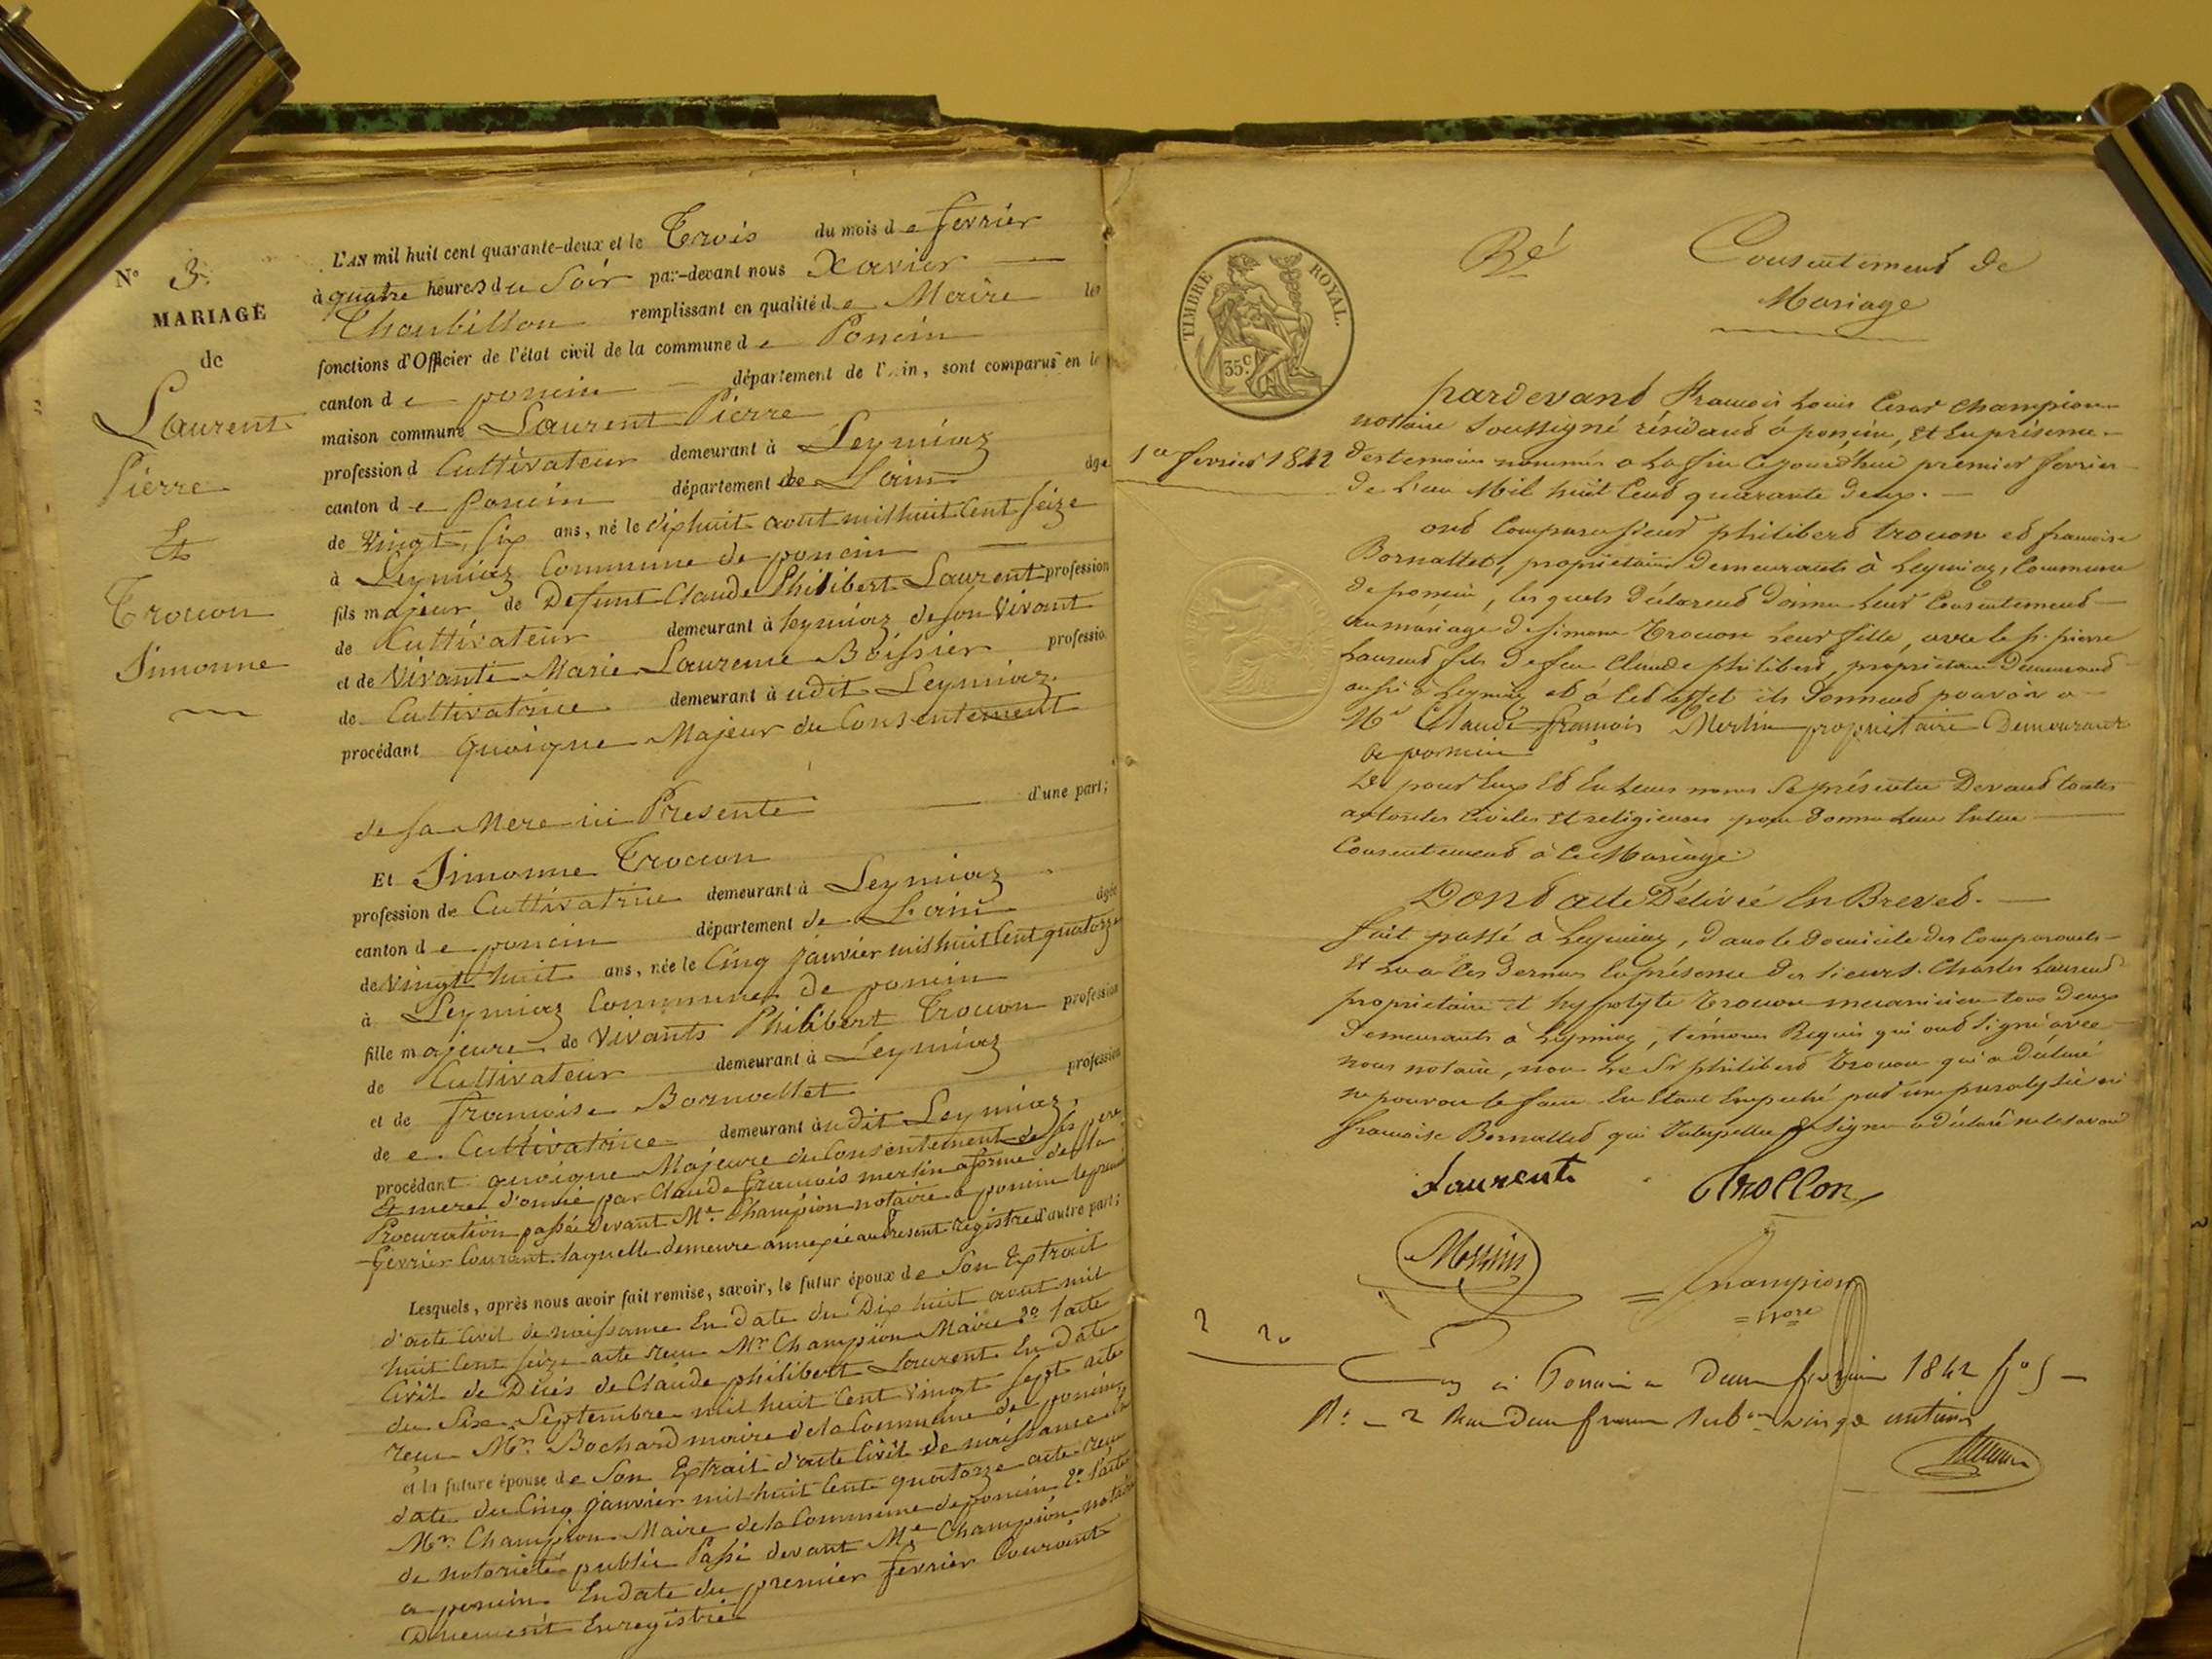 N° 3.
MARIAGE
de
Laurent
Pierre
Et
Trocon
Simonne
L'AN mil huit cent quarante-deux et le Trois du mois de fevrier
à quatre heures du Soir par-devant nous Xavier
Choubillon remplissant en qualité de Maire les
fonctions d'Officier de l'état civil de la commune de Poncin
canton de poncin département de l'Ain, sont comparus en la
maison commune Laurent Pierre
profession d Cultivateur demeurant à Leymiaz
canton de Poncin département de L'ain âgé
de Vingt, Six ans, né le dixhuit aout mil huit Cent Seize
à Leymiaz Commune de poncin
fils majeur de Defunt Claude Philibert Laurent profession
de Cultivateur demeurant à Leymiaz de son Vivant
et de Vivante Marie Laurence Boissier profession
de Cultivatrice demeurant à udit Leymiaz.
procédant quoique Majeur du Consentement
de sa Mere ici Presente d'une part;
Et Simonne Trocon
profession de Cultivatrice demeurant à Leymiaz
canton de poncin département de L'ain âgée
de Vingt huit ans, née le Cinq janvier mil huit Cent quatorze
à Leymiaz Commune de poncin
fille majeure de Vivants Philibert Trocon profession
de Cultivateur demeurant à Leymiaz
et de françoise Bornallet profession
de e. Cultivatrice demeurant à udit Leymiaz,
procédant quoique Majeure du Consentement de ses pere
Et mere donné par Claude françois merlin a forme de la
Procuration passée devant Me. Champion notaire a poncin le premier
fevrier Courant laquelle demeure annexée au Present registre d'autre part;
Lesquels, après nous avoir fait remise, savoir, le futur époux de Son Extrait
d'acte Civil de naissance En date du Dix huit aout mil
huit Cent Seize acte reçu Mr. Champion Maire 2° l'acte
Civil de Décès de Claude philibert Laurent En date
du Six Septembre mil huit Cent Vingt Sept acte
reçu Mr. Bochard maire de la Commune de poncin
et la future épouse de Son Extrait d'acte Civil de naissance En
date du Cinq janvier mil huit Cent quatorze acte reçu
Mr. Champion Maire de la Commune de poncin 2° l'acte
de notorieté public Passé devant Me Champion notaire
a poncin En date du premier fevrier Courant
Duement Enregistré
TIMBRE ROYAL.
35c
Consentement de
Mariage
1er fevrier 1842
pardevant François Louis Cesar Champion
notaire Soussigné résidant à poncin, Et En présence
des temoins nommés a la fin Cejourd'hui premier fevrier
de L'an Mil huit Cent quarante deux.
ont Comparu Sieur philibert trocon et françoise
Bornallet, proprietaires Demeurants à Leymiaz, Commune
de poncin, lesquels déclarent donner leur Consentement
au mariage de simone Trocon leur fille, avec le s. pierre
Laurent fils de feu Claude philibert, proprietaire demeurant
aussi à Leymiaz et à Cet effet ils donnent pouvoir a
Mr Claude françois Merlin proprietaire Demeurant
a poncin
De pour Eux Et En Leurs noms Se présenter Devant toutes
autorités Civiles Et religieuses pour donner Leur Entier
Consentement à Ce Mariage.
Dont acte Délivré En Brevet.
fait passé à Leymiaz, dans le Domicile des Comparants
Et Lu a Ces Derniers En présence des sieurs Charles Laurent
proprietaire et hyppolyte Trocon mecanicien tous deux
demeurants à Leymiaz, témoins Requis qui ont signé avec
nous notaire, non Le Sr philibert Trocon qui a déclaré
ne pouvoir le faire En Etant Empeché par une paralysie ni
françoise Bornallet qui Interpellée de signer a déclaré ne le savoir
Laurent Trollon
Champion
Nore
1842 fo 5